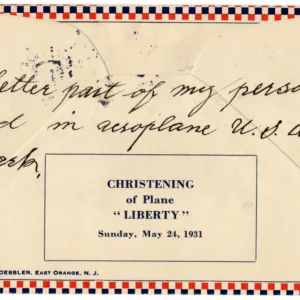 letter part of my perso
d in aeroplane U.S.A
eek.
CHRISTENING
of Plane
"LIBERTY"
Sunday, May 24, 1931
OESSLER, EAST ORANGE, N. J.